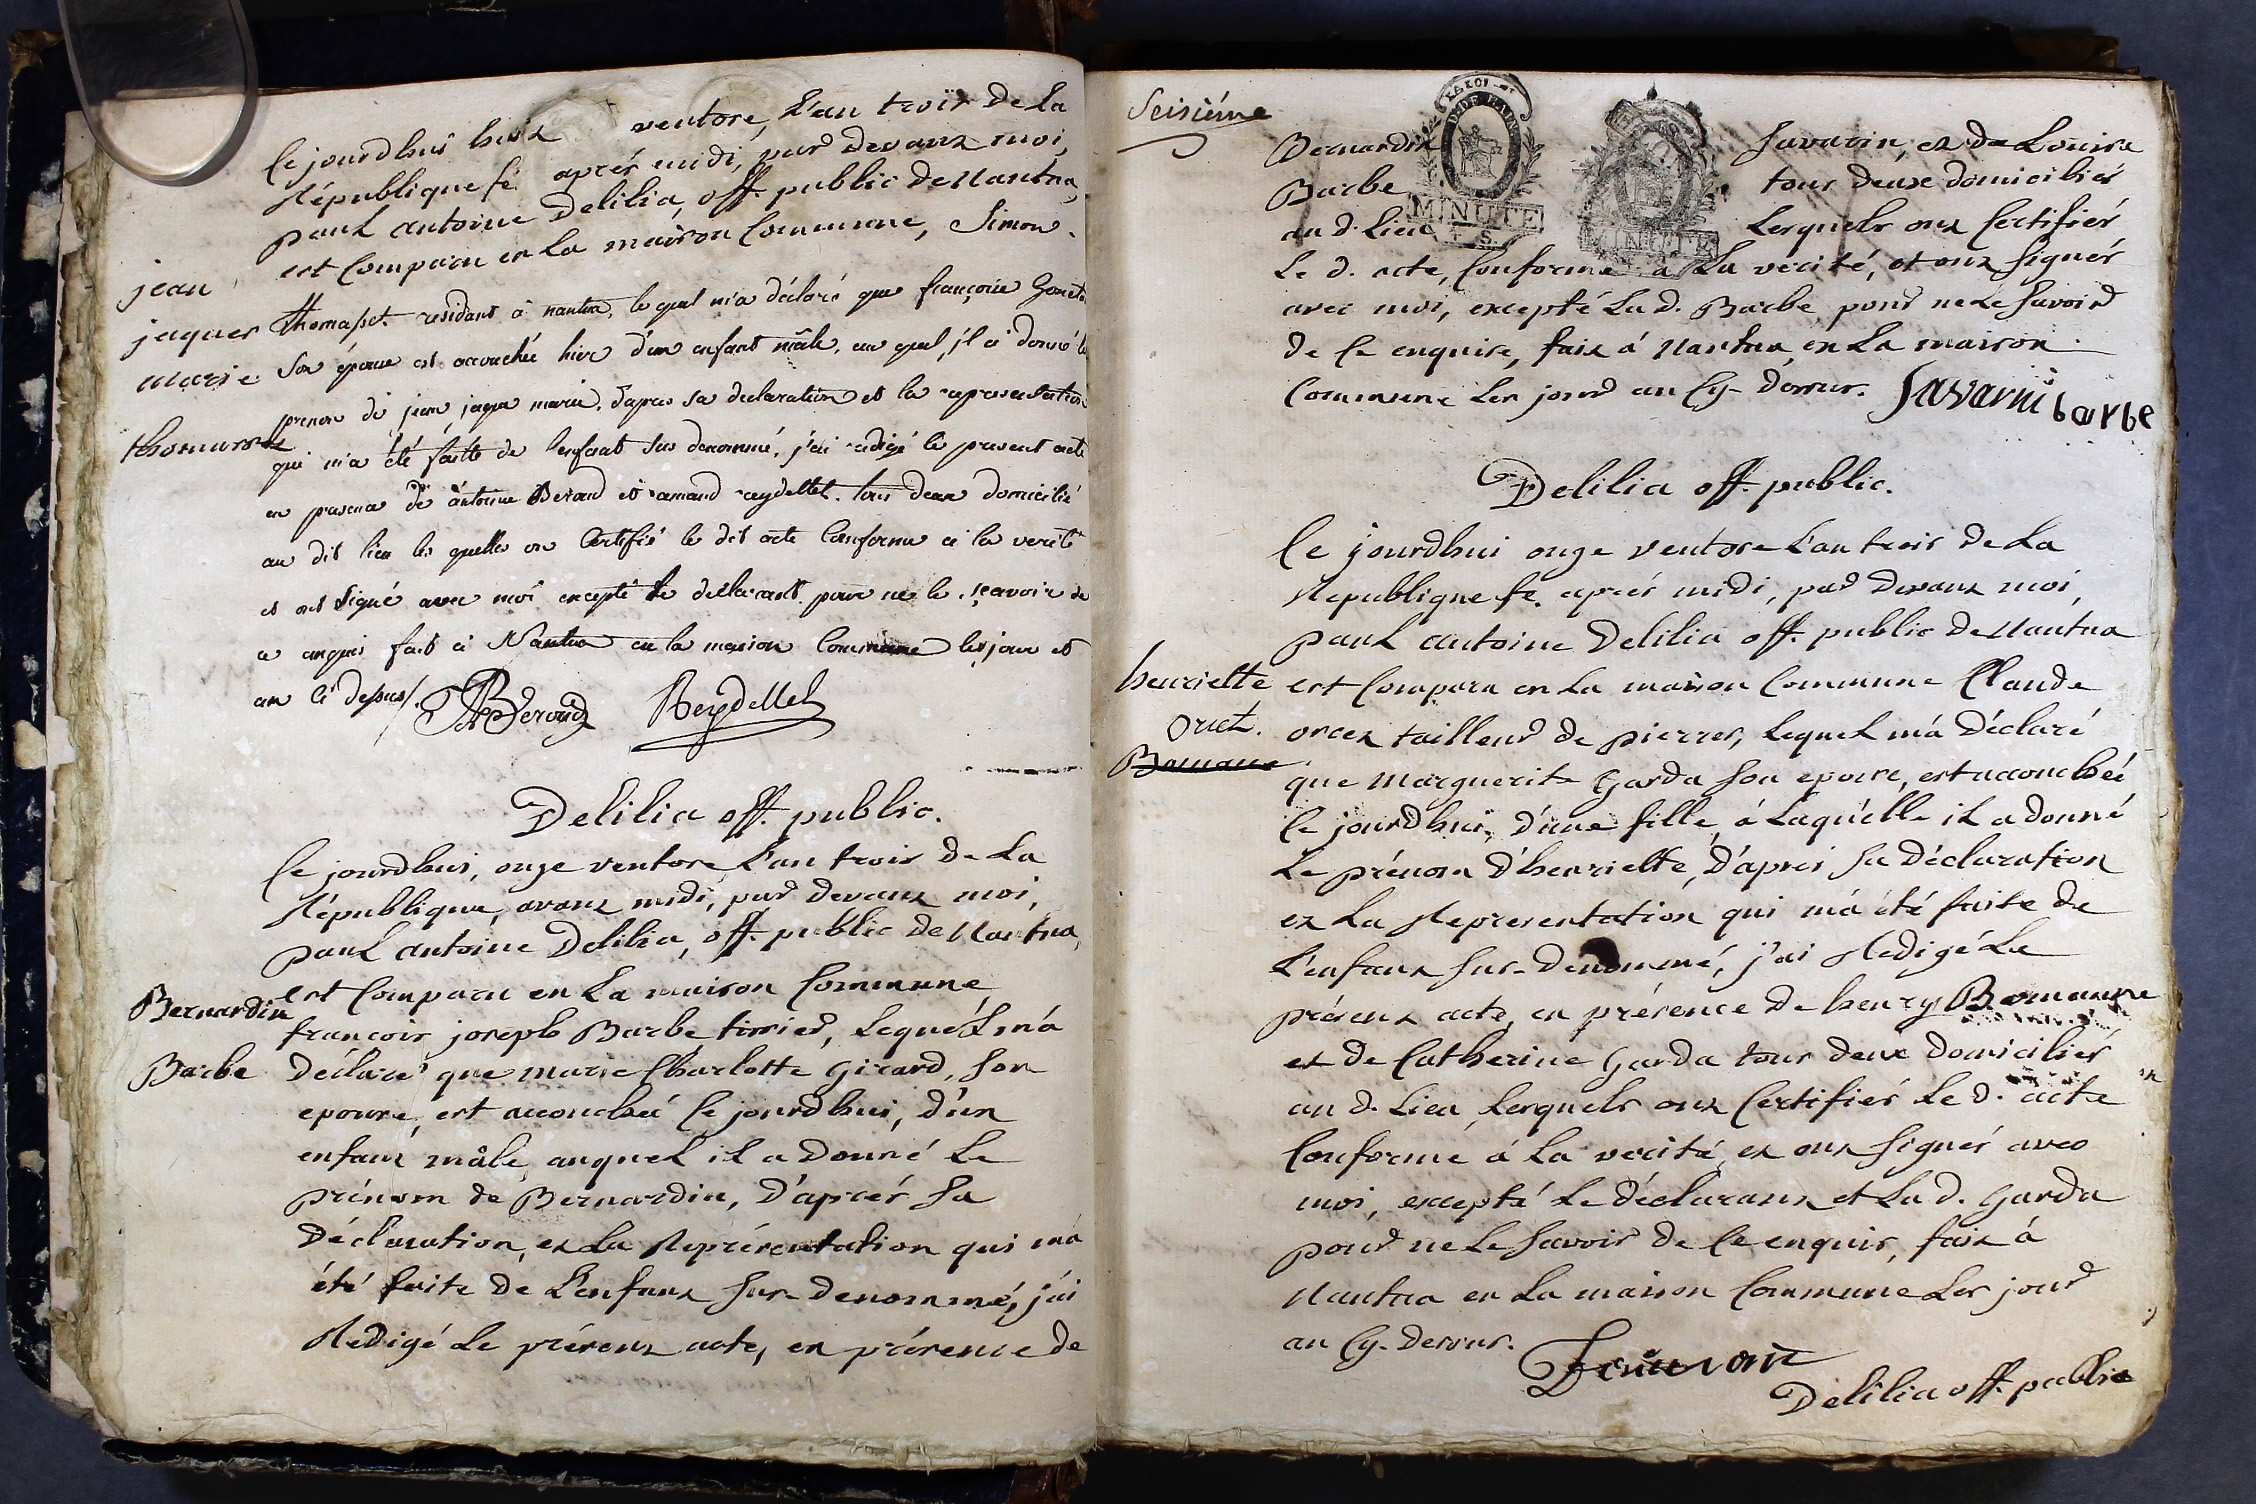 Ce jourd'hui huit ventose, L'an trois de La
République fe. après midi, par devant moi,
paul antoine Delilia, off. public de Nantua,
est Comparu en La maison Commune, Simon
jean
jaques
marie
thomasset
Thomasset résidant à nantua, le quel m'a déclaré que françoise
Son épouse est accouchée hier d'un enfant mâle, au quel, il a donné le
prenom de jean jaque marie, d'apres sa declaration et la representation
qui m'a été faite de l'enfant sus denommé, j'ai rédigé le present acte
en presence de antoine Beroud et amand reydellet tous deux domicilié
au dit lieu les quelles on Certifié le dit acte Conforme a la verité
et ont Signé avec moi excepté le déclarant pour ne le sçavoir de
ce enquis fait à Nantua en la maison Commune les jour et
an ci dessus.
Beroud Reydellet
Delilia off. public.
Ce jourd'hui, onze ventose L'an trois de La
République, avant midi, par devant moi,
paul antoine Delilia, off. public de Nantua,
est Comparu en La maison Commune
Bernardin
Barbe
francois joseph Barbe tissier, Lequel m'a
déclaré que marie Charlotte Girard, son
epouse, est accouchée Ce jourd'hui, d'un
enfant mâle, auquel il a donné Le
prénom de Bernardin, D'après sa
Déclaration, et La Représentation qui m'a
été faite de L'enfant sus-denommé, j'ai
Redigé Le présent acte, en présence de
Seisiéme
Bernardin Savarin, et de Louise
Barbe tous deux domiciliés
au d. Lieu Lesquels ont Certifiés
Le d. acte, Conforme a La verité, et ont signés
avec moi, excepté La d. Barbe pour ne Le Savoir
de Ce enquise, fait à Nantua en La maison
Commune Les jour an Cy-dessus. Savarin barbe
MINUTE
MINUTE
Delilia off. public.
Ce jourd'hui onze ventose L'an trois de La
Republique fe. aprés midi, par devant moi,
paul antoine Delilia off. public de Nantua
henriette
oriet.
est Comparu en La maison Commune Claude
orcet tailleur de pierres, Lequel m'a Déclaré
que Marguerite Garda son epouse, est accouchée
Ce jourd'hui, d'une fille, à Laquelle il a donné
Le prénom d'henriette, D'après sa Déclaration
et La Representation qui m'a été faite de
L'enfant sus-denommé, j'ai Redigé Le
présent acte, en présence de henry
et de Catherine Garda tous deux domiciliés
au d. Lieu, Lesquels ont Certifiés Le d. acte
Conforme à La verité, et ont signés avec
moi, excepté Le déclarant et La d. Garda
pour ne Le Savoir de Ce enquis, fait à
Nantua en La maison Commune Les jour
an Cy-dessus.
Delilia off. public